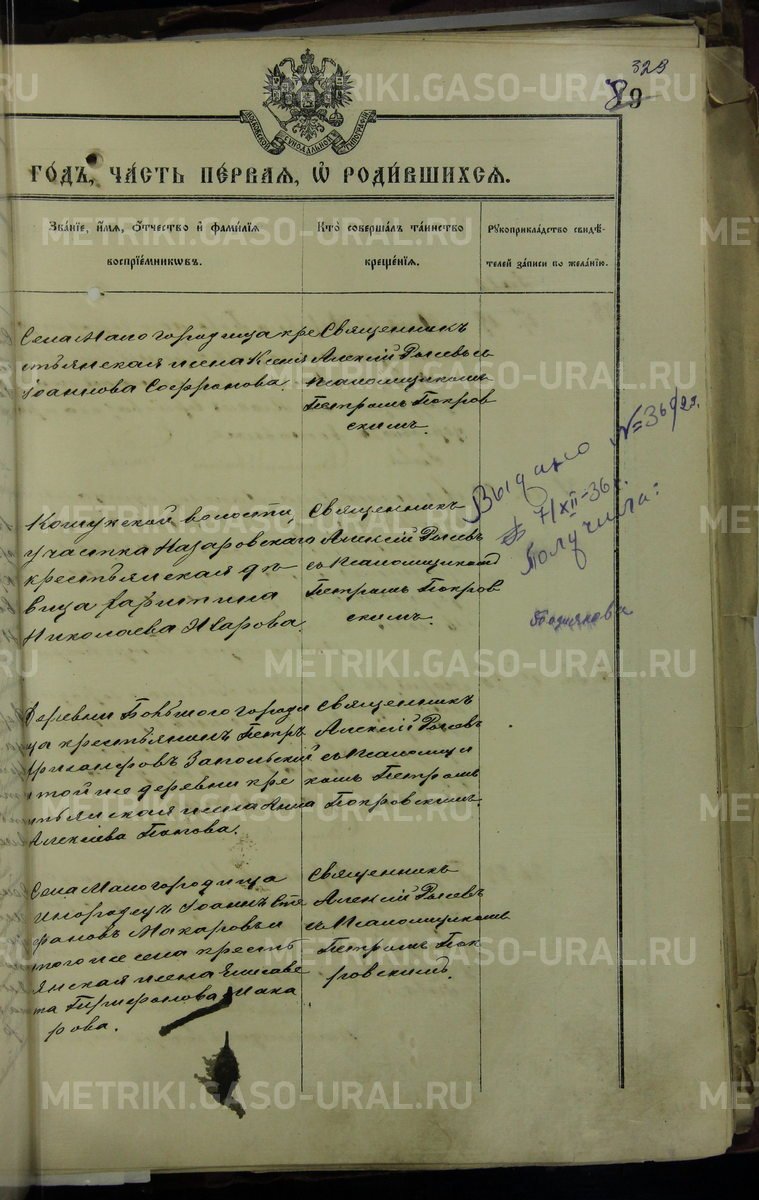 329
89
МОСКОВСКОЙ СУНОДАЛЬНОЙ ТИПОГРАФІИ
ГОДЪ, ЧАСТЬ ПЕРВАЯ, Ѿ РОДИВШИХСЯ.
Званіе, имя, отчество и фамилія
воспріемниковъ.
Кто совершалъ таинство
крещенія.
Рукоприкладство свидѣ-
телей записи по желанію.
Села Малогородища кре
стьянская жена Ксенія
Іоаннова Софронова.
Священникъ
Алексій
псаломщикомъ
Петромъ Покров
скимъ.
Кошукской волости,
участка Назаровскаго
крестьянская дѣ
вица
Николаева Уварова.
Священникъ
Алексій
съ псаломщикомъ
Петромъ Покров
скимъ.
Выдано №
7/XII-36 г.
Получила:
Деревни Большого городи
ща крестьянинъ Петръ
Запольскій
той же деревни кре
стьянская жена Анна
Алексіева
Священникъ
Алексій
съ псаломщи
комъ Петромъ
Покровскимъ.
Села Малогородища
инородецъ Іоаннъ Сте
фановъ Макаровъ и
того же села кресть
янская жена Елисаве
та Мака
рова.
Священникъ
Алексій
съ псаломщикомъ
Петромъ Пок
ровскимъ.
METRIKI.GASO-URAL.RU